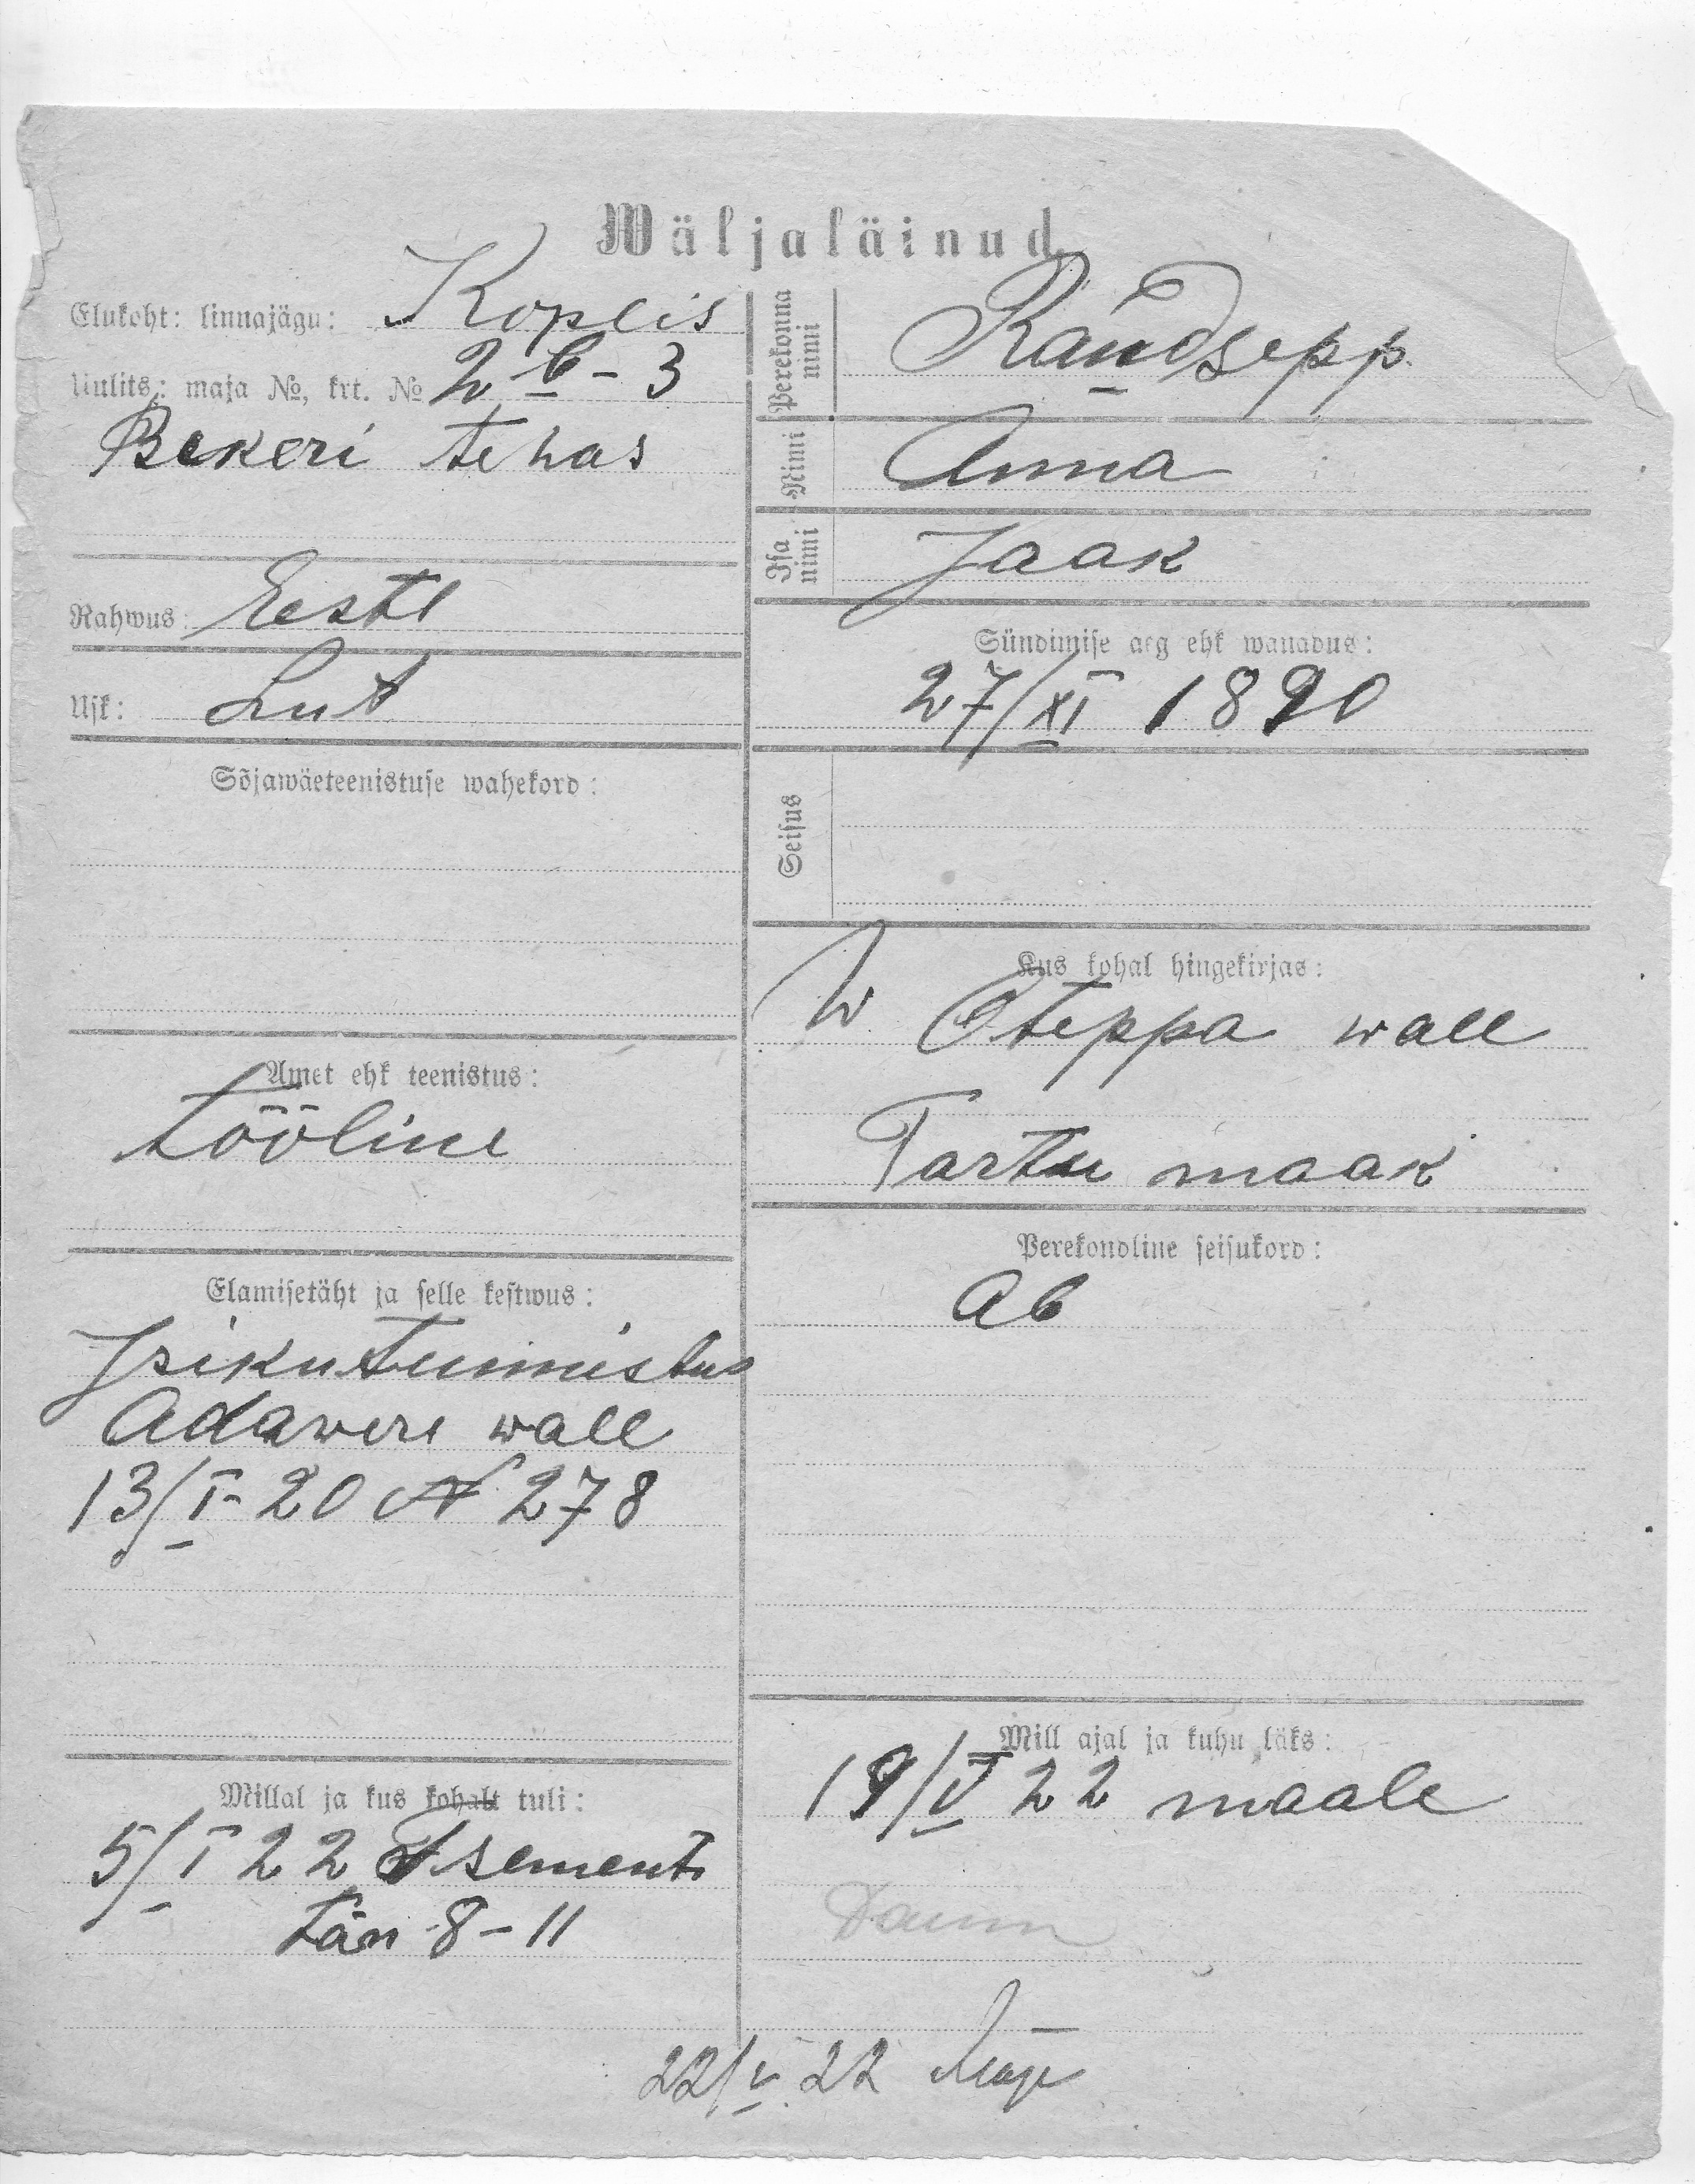 Wäljaläinud
Elukoht: linnajägu: Koplis
Uulits: maja №, krt. № 2 b - 3
Bekeri tehas
Rahwus: Eesti
Usk: Lut
Sõjawäeteenistuse wahekord:
Amet ehk teenistus:
Tööline
Elamisetäht ja selle kestwus:
Isikutunnistus
Adawere wall
13/I-20 № 278
Millal ja kus kohalt tuli:
5/I 22 Tsementi
tän 8-11
Perekonna nimi Raudsepp
Nimi Anna
Isa nimi Jaak
Sündimise aeg ehk wanadus:
27/XI 1890
Seisus
Kus kohal hingekirjas:
W Oteppa wall
Tartu maak
Perekondline seisukord:
Ab
Mill ajal ja kuhu läks:
19/V 22 maale
22/V 22